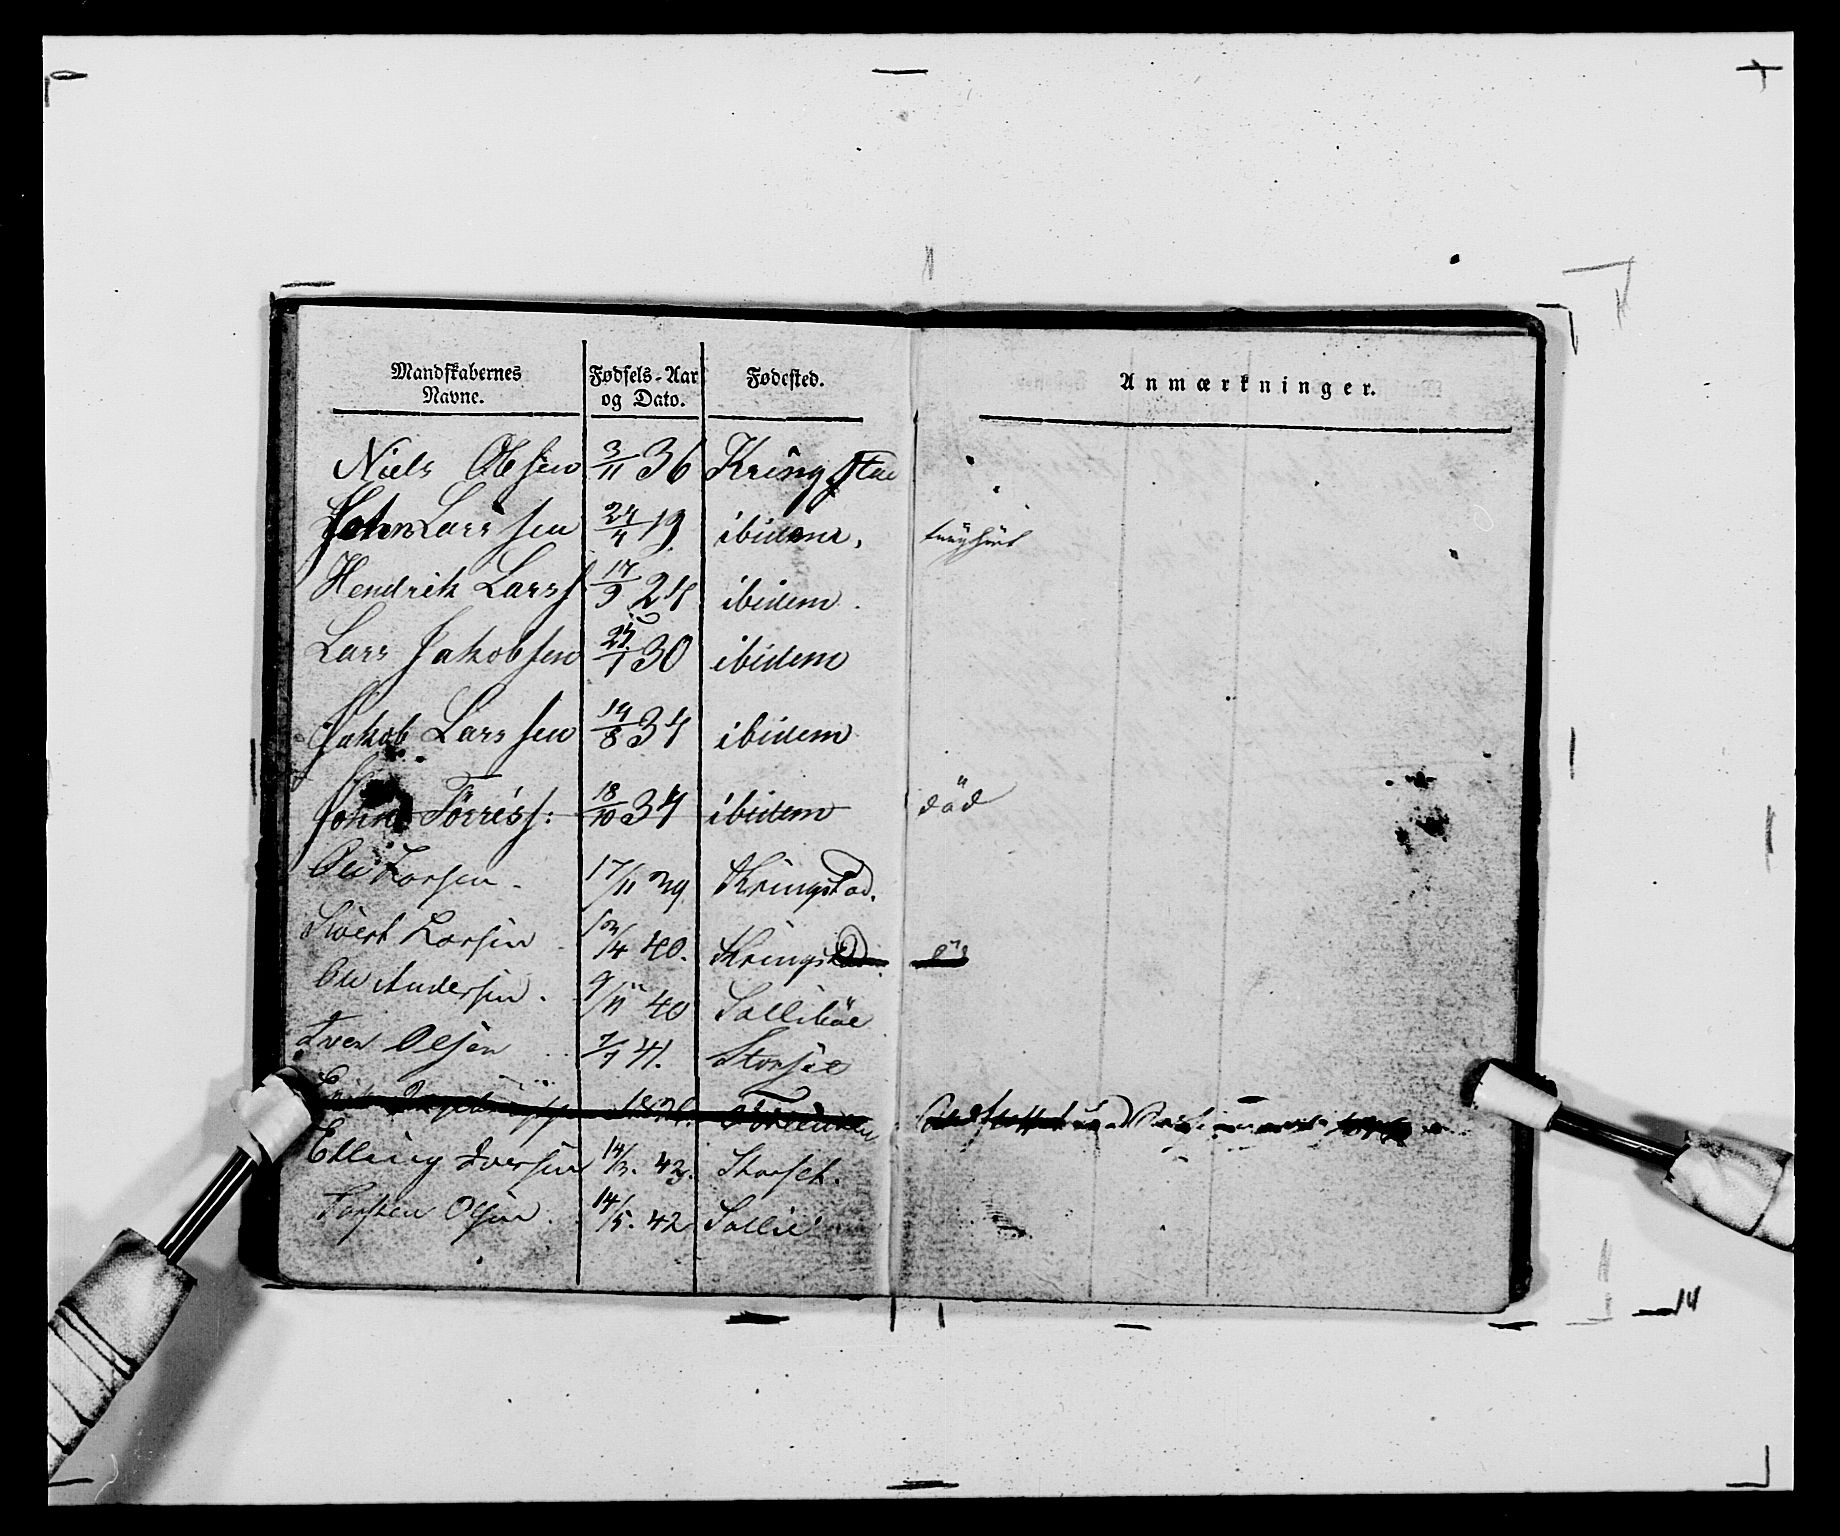 Mandskabernes Navne. Fødsels-Aar og Dato. Fødested. Anmærkninger.
Niels Olsen 3/11 36 Kringstad
John Larssen 24/4 19 ibidem,
Hendrik Larss 17/9 24 ibidem.
Lars Jakobsen 24/1 30 ibidem
Jakob Larssen 19/8 34 ibidem
John Törriss: 18/10 34 ibidem död
Ole Larsen. 17/11 39. Kringstad.
Sivert Larsen 13/4 40. Kringstad.
Ole Andersen. 9/11 40 Solliböe
Iver Olsen 7/7 41. Storset
Elling Iversen 14/3. 43. Storset.
Torsten Olsen. 14/5. 42 Sollie
14